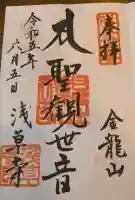 奉拝
金龍山
聖観世音
令和五年
六月五日
浅草寺